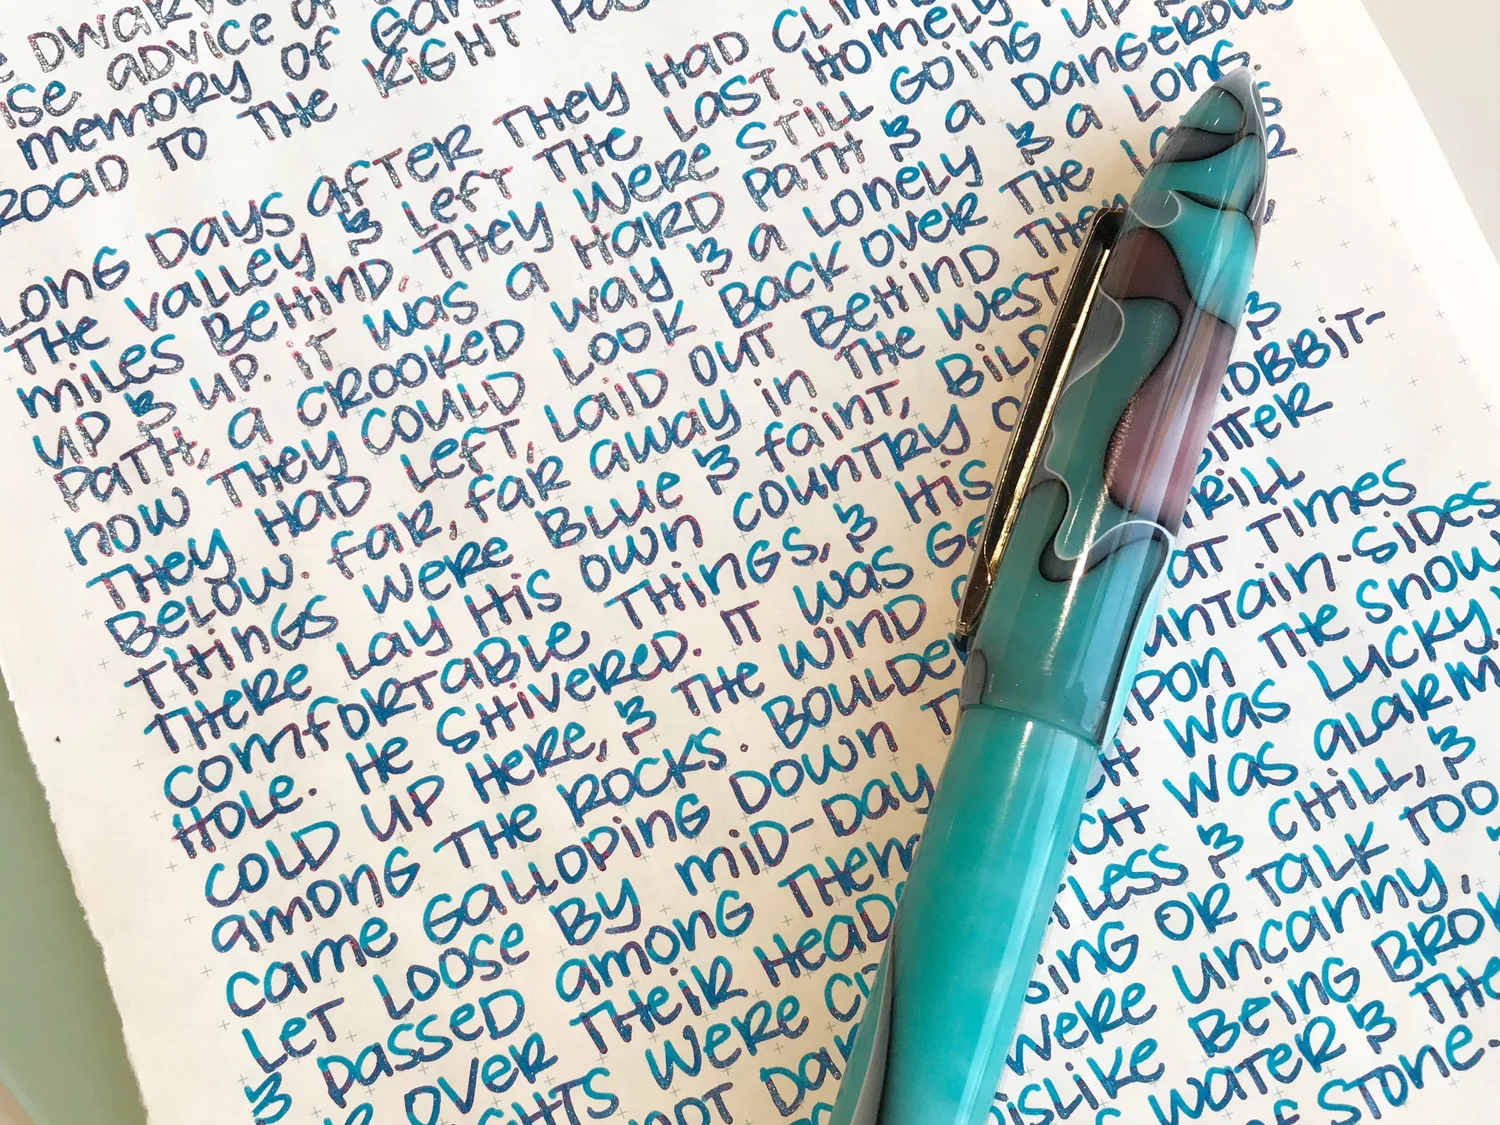 DWARV
ISE ADVICE OF
memory OF
ROAD TO THE RIGHT
LONG DAYS AFTER THEY HAD
THE VALLEY & LEFT THE LAST HOMELY
MILES BEHIND, THEY WERE STILL GOING UP
UP & UP. IT WAS A HARD PATH & A DANGEROUS
PATH, A CROOKED WAY & A LONELY & A LONG.
NOW THEY COULD LOOK BACK OVER THE
THEY HAD LEFT, LAID OUT BEHIND THEM
BELOW. FAR, FAR AWAY IN THE WEST
THINGS WERE BLUE & FAINT, BILB &
THERE LAY HIS OWN COUNTRY HOBBIT-
COMFORTABLE THINGS, & HIS
HOLE. HE SHIVERED. IT WAS BITTER
COLD UP HERE, & THE WIND HRILL
AMONG THE ROCKS. BOULDER AT TIMES
CAME GALLOPING DOWN UNTAIN-SIDES
LET LOOSE BY MID-DAY UPON THE SNOW
& PASSED AMONG THEM CH WAS LUCKY,
OR OVER THEIR HEADS CH WAS ALARM
GHTS WERE TLESS & CHILL, &
NOT DAR SING OR TALK TOO
WERE UNCANNY,
DISLIKE BEING BROK
WATER & THE
OF STONE.